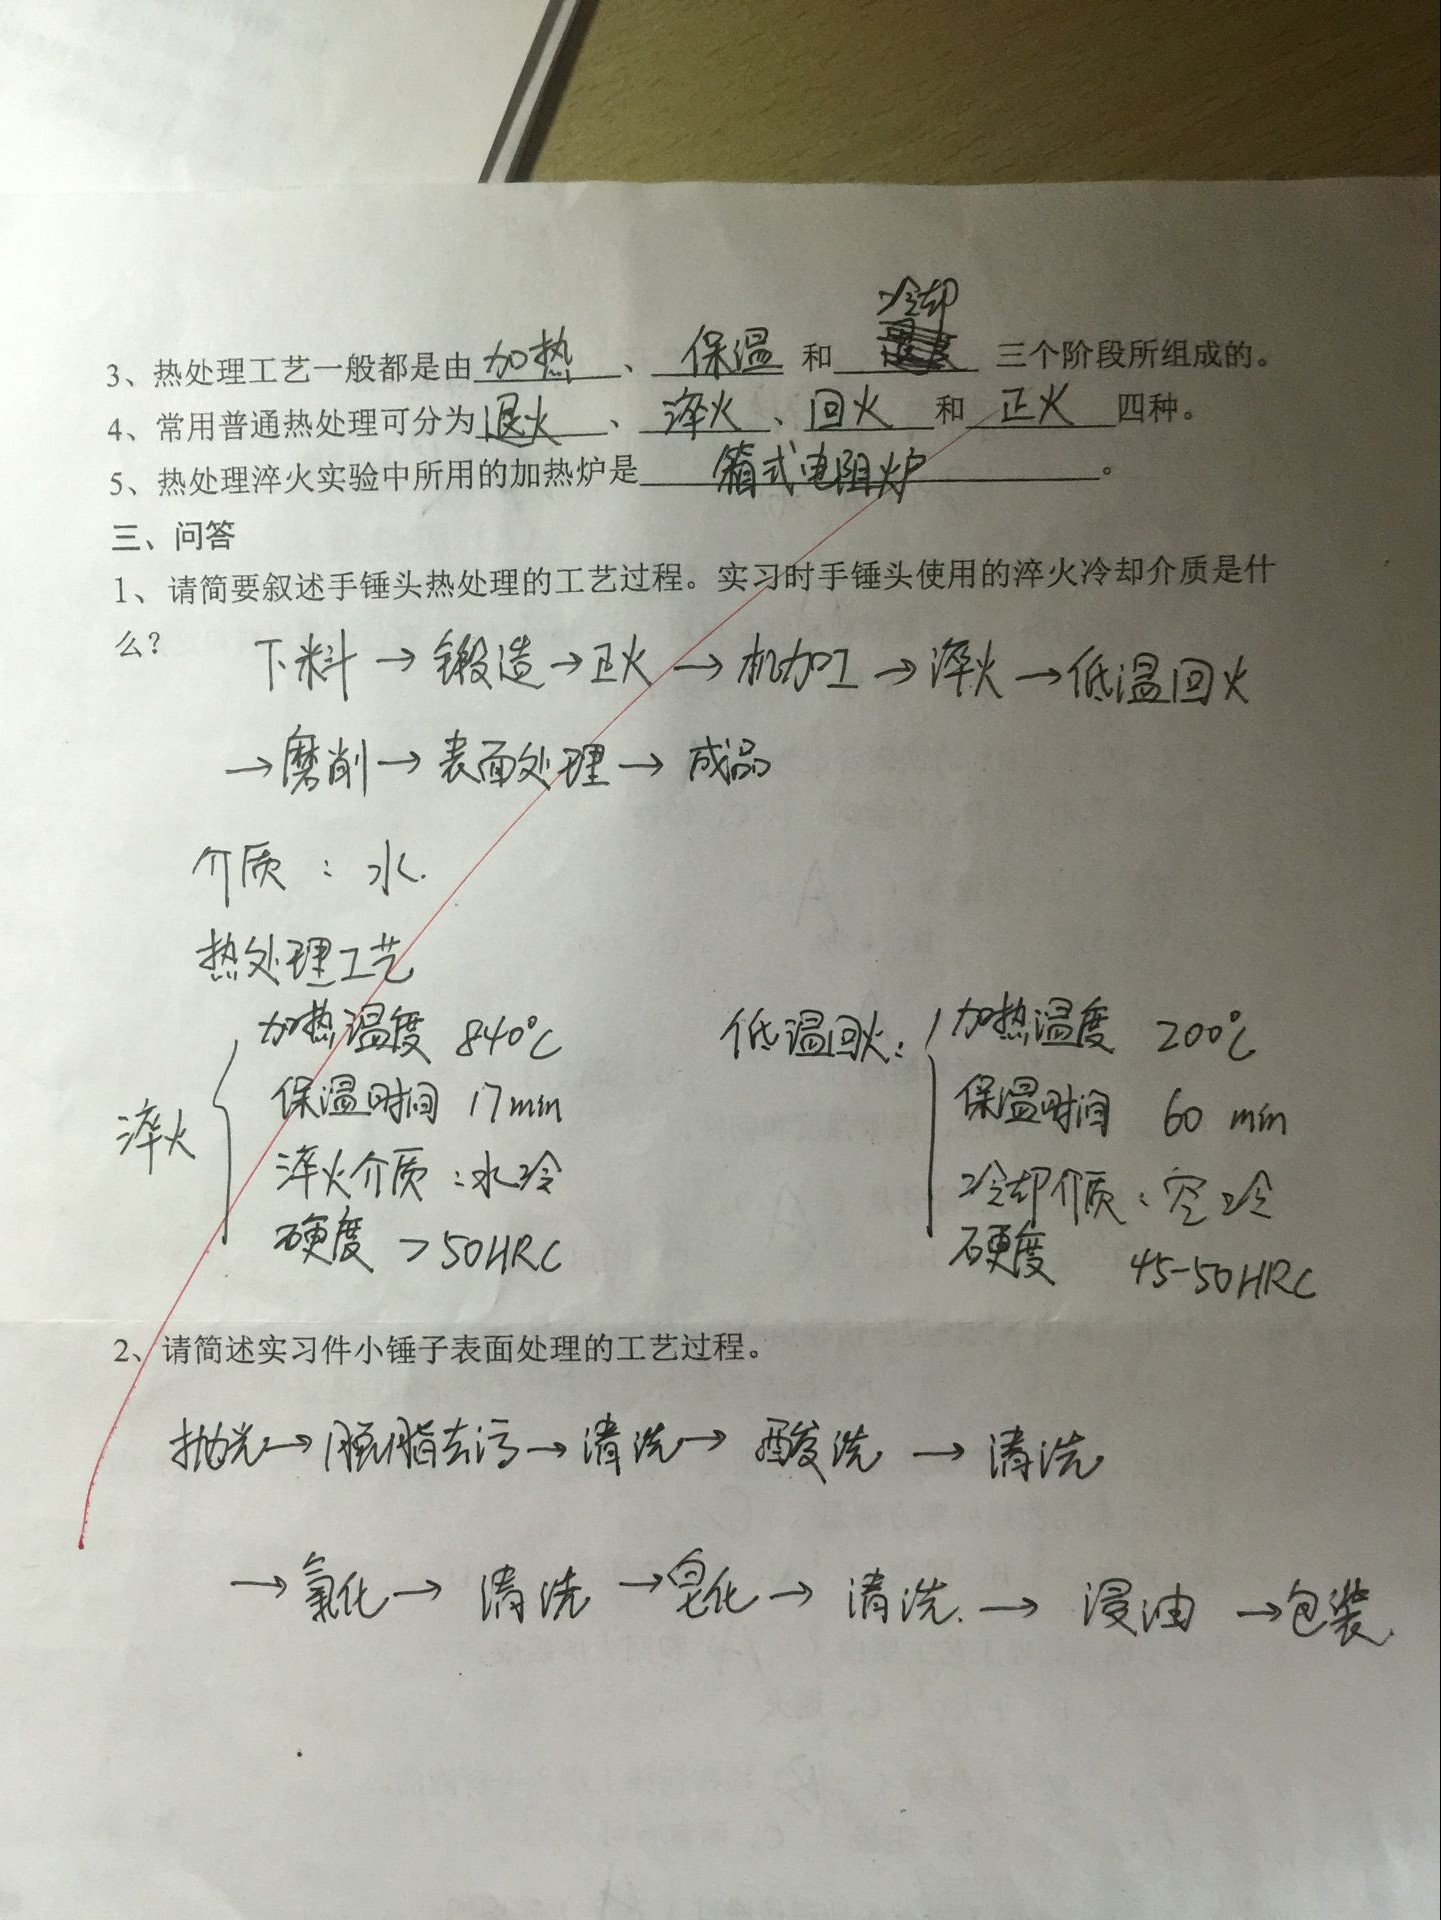 3、热处理工艺一般都是由 加热 、 保温 和 冷却 三个阶段所组成的。
4、常用普通热处理可分为 退火 、 淬火 、 回火 和 正火 四种。
5、热处理淬火实验中所用的加热炉是 箱式电阻炉 。
三、问答
1、请简要叙述手锤头热处理的工艺过程。实习时手锤头使用的淬火冷却介质是什
么？
下料→锻造→正火→机加工→淬火→低温回火
→磨削→表面处理→成品
介质：水.
热处理工艺
淬火
加热温度 840℃
保温时间 17min
淬火介质：水冷
硬度 >50HRC
低温回火：
加热温度 200℃
保温时间 60 min
冷却介质：空冷
硬度 45-50HRC
2、请简述实习件小锤子表面处理的工艺过程。
抛光→脱脂去污→清洗→酸洗→清洗
→氧化→清洗→皂化→清洗.→浸油→包装.